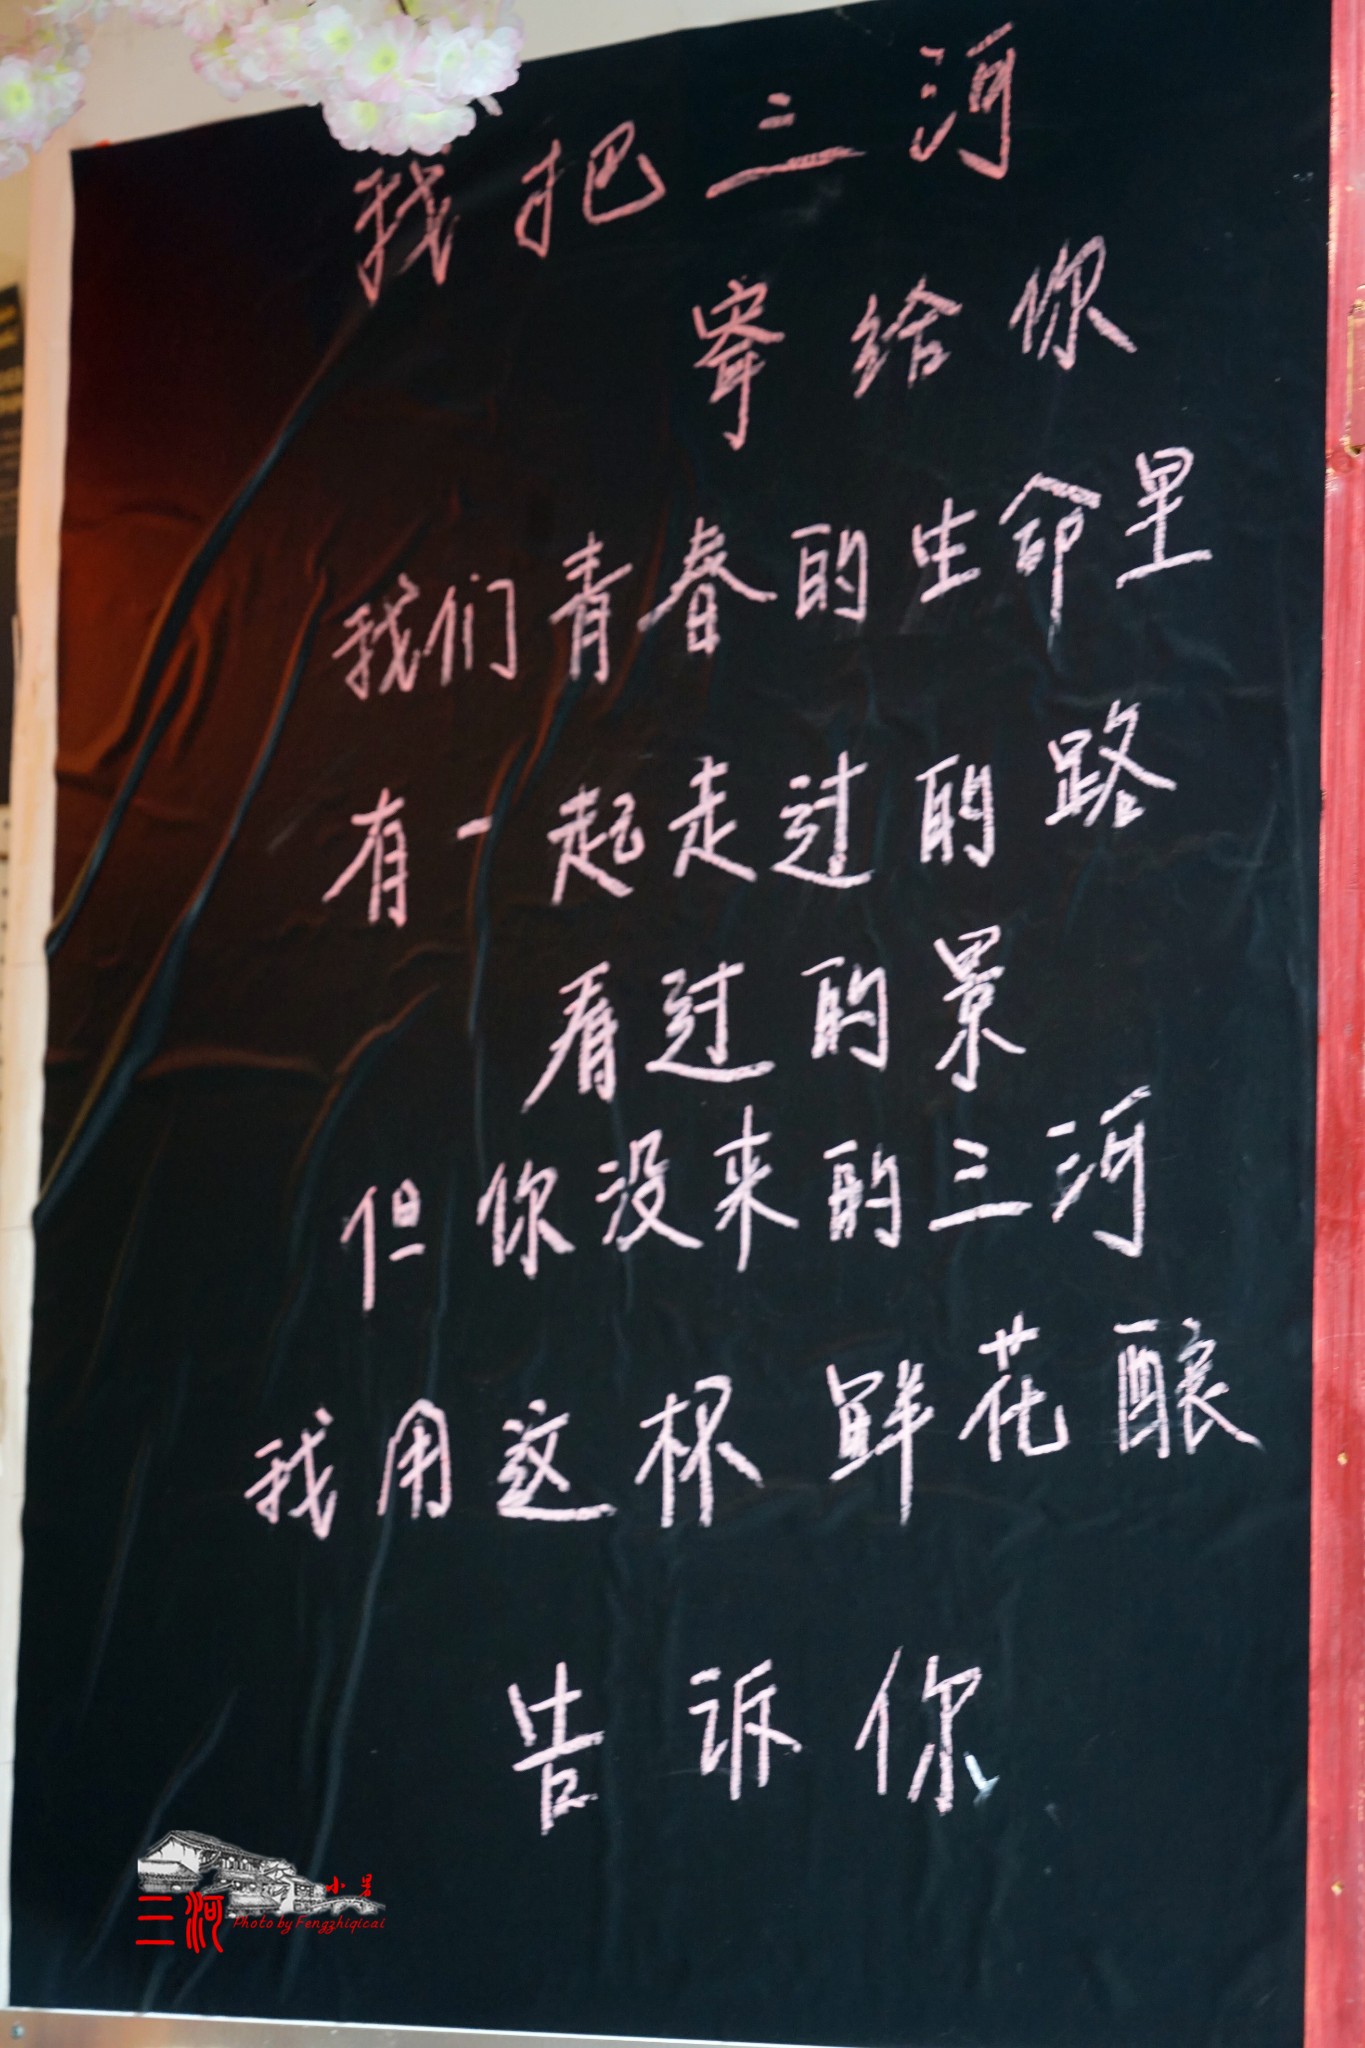 我把三河
寄给你
我们青春的生命里
有一起走过的路
看过的景
但你没来的三河
我用这杯鲜花酿
告诉你
小暑
三河
Photo by Fengzhiqicai